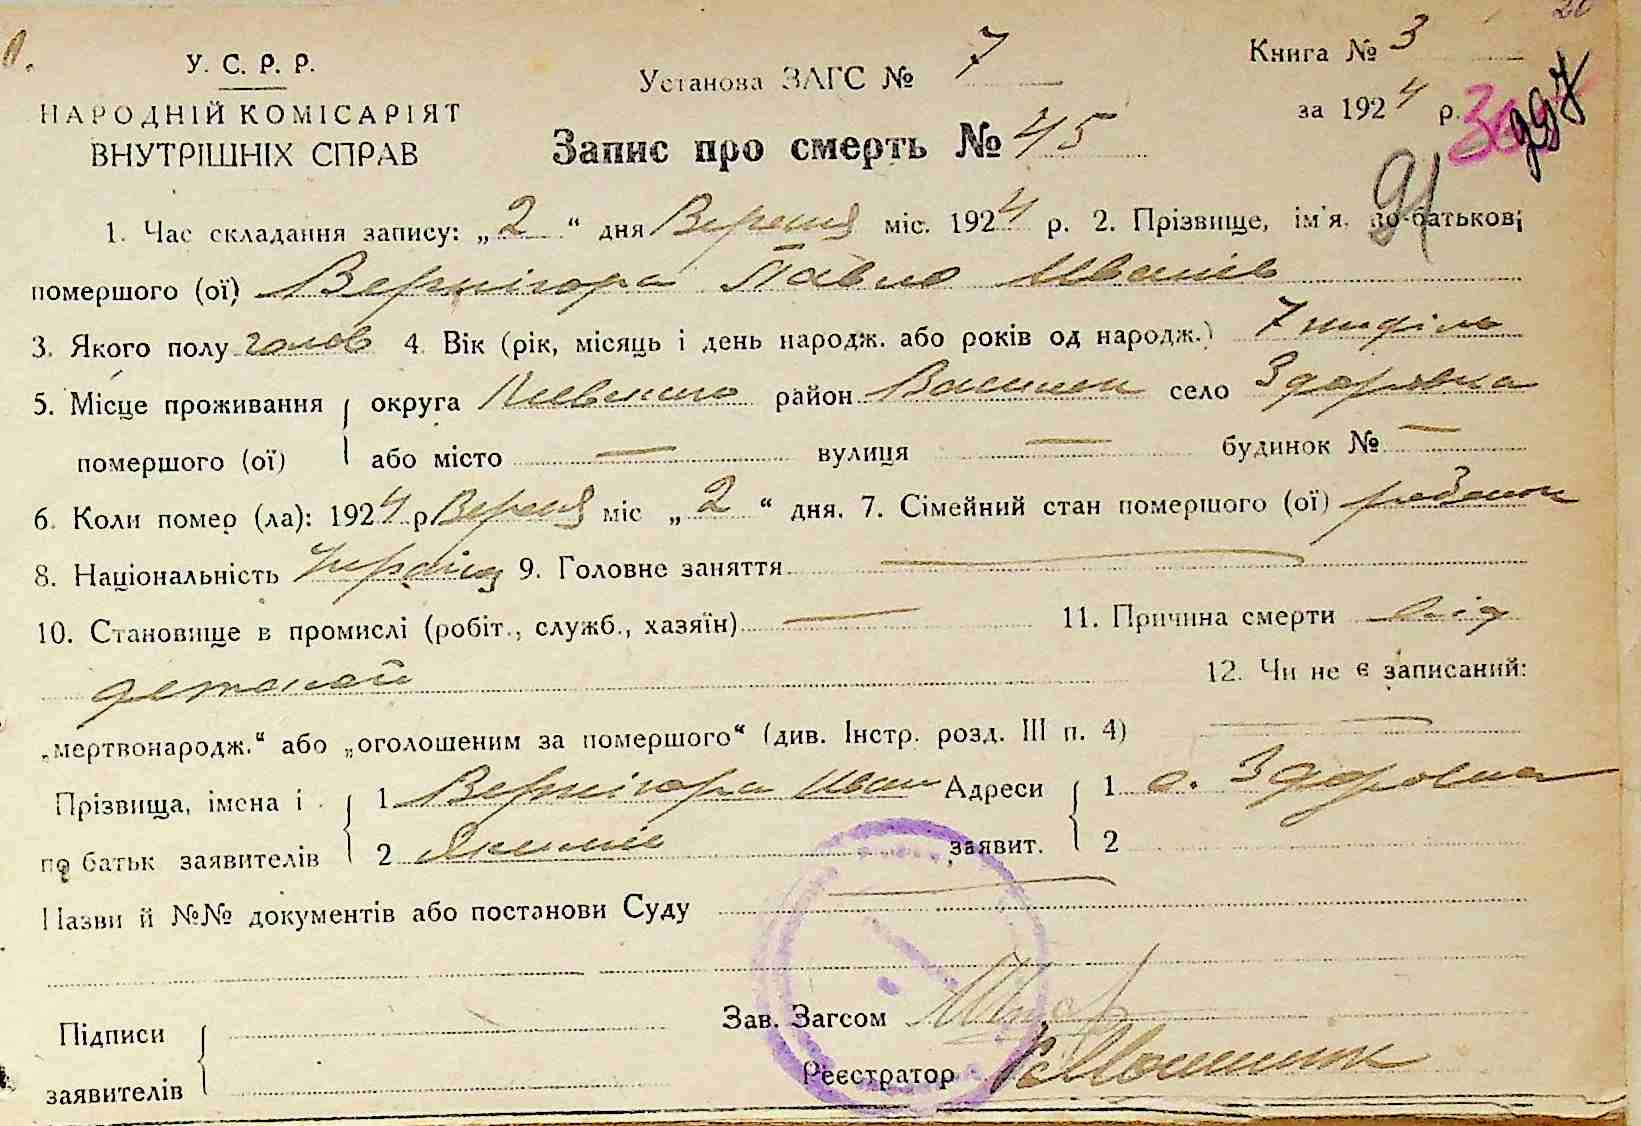 У. С. Р. Р.
НАРОДНІЙ КОМІСАРІЯТ
ВНУТРІШНІХ СПРАВ
Установа ЗАГС № 7
Книга № 3
за 1924 р.
297
91
Запис про смерть № 45
1. Час складання запису: „2“ дня Вересня міс. 1924 р. 2. Прізвище, ім'я, по-батькові
помершого (ої) Вернигора Павло Иванів
3. Якого полу чолов 4. Вік (рік, місяць і день народж. або років од народж.) 7 неділь
5. Місце проживання помершого (ої) округа Киевського район Васильк село Здоровка
або місто — вулиця — будинок № —
6. Коли помер (ла): 1924 р Вересня міс „2“ дня. 7. Сімейний стан помершого (ої) ребенок
8. Національність Україн 9. Головне заняття —
10. Становище в промислі (робіт., служб., хазяїн) — 11. Причина смерти від
12. Чи не є записаний:
„мертвонародж.“ або „оголошеним за помершого“ (див. Інстр. розд. III п. 4) —
Прізвища, імена і по батьк заявителів 1 Вернигора Иван Адреси заявит. 1 с. Здоровка
2 Якимів 2
Назви й №№ документів або постанови Суду —
Підписи заявителів
Зав. Загсом
Реєстратор